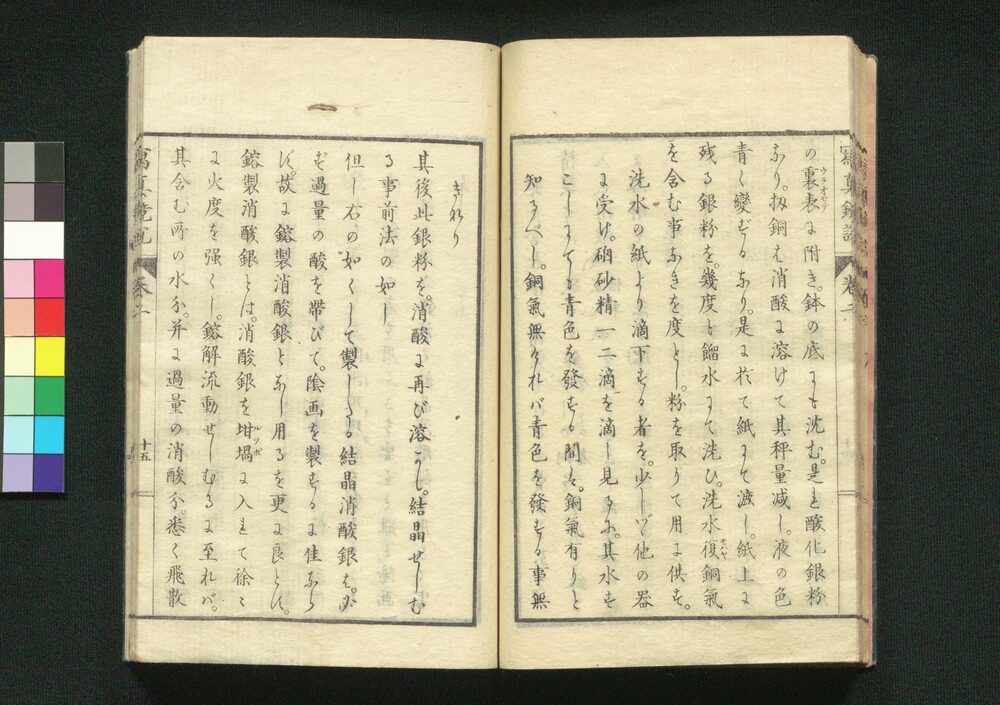 の裏表に附き。鉢の底にも沈む。是も酸化銀粉
ウラオモテ
なり。扨銅も消酸に溶けて其秤量減し。液の色
青く變ずるなり。是に於て紙にて漉し。紙上に
残る銀粉を。幾度も餾水にて洗ひ。洗水復銅氣
モハヤ
を含む事なきを度とし。粉を取りて用に供す。
洗水の紙より滴下する者を。少しづゝ他の器
に受け。硇砂精一二滴を滴し見るに。其水す
こしにても青色を發する間は。銅氣有りと
知るべし。銅氣無ければ青色を發する事無
寫眞鏡説
卷二
きなり
其後此銀粉を。消酸に再び溶かし。結晶せしむ
る事前法の如し
但し右の如くして製したる結晶消酸銀は。必
ず過量の酸を帶びて。陰画を製するに佳なら
ず。故に鎔製消酸銀となし用るを更に良とす。
鎔製消酸銀とは。消酸銀を坩堝に入れて徐々
ルツボ
に火度を强くし。鎔解流動せしむるに至れバ。
其含む所の水分。并に過量の消酸分。悉く飛散
寫眞鏡説
卷二
十五